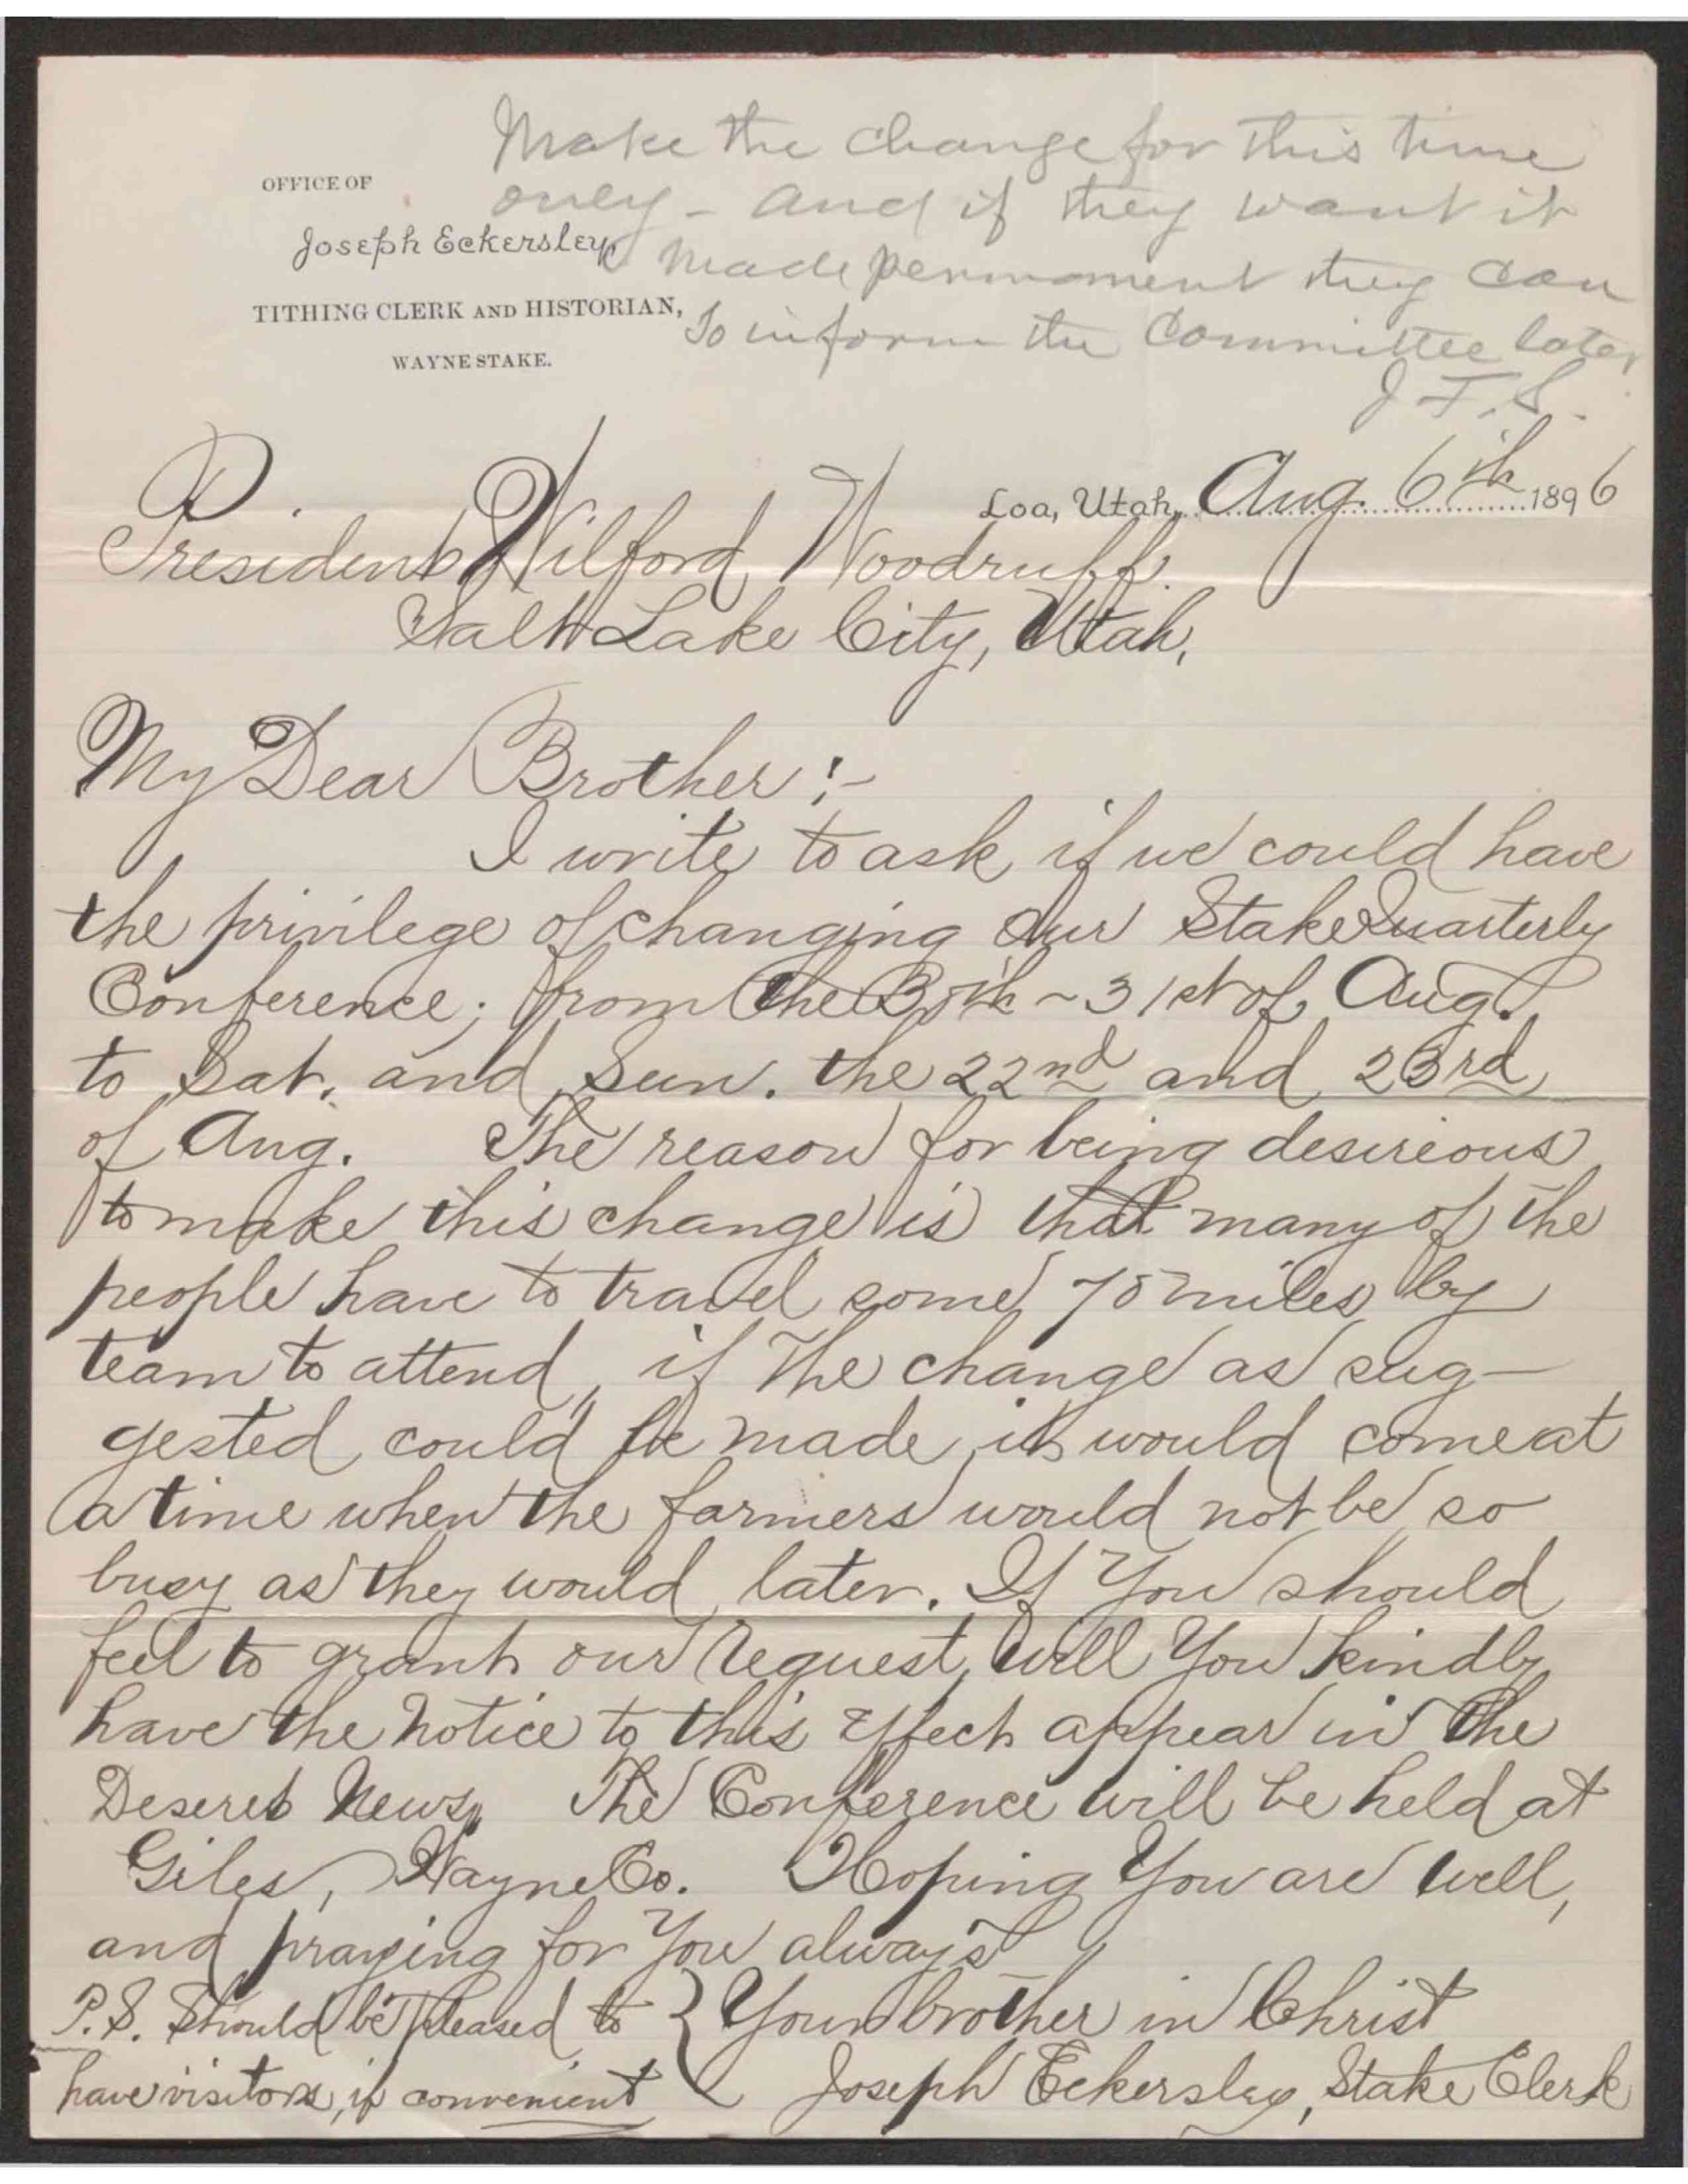 Make the change for this time
only - and if they want it
made permanent they can
so inform the Committee later,
J. F. S.
OFFICE OF
Joseph Eckersley,
TITHING CLERK AND HISTORIAN,
WAYNE STAKE.
Loa, Utah, Aug. 6th 1896
President Wilford Woodruff.
Salt Lake City, Utah,
My Dear Brother :-
I write to ask if we could have
the privilege of changing our Stake Quarterly
Conference; from the 30th ~ 31st of Aug.
to Sat. and Sun. the 22nd and 23rd
of Aug. The reason for being desireous
to make this change is that many of the
people have to travel some 75 miles by
team to attend, if the change as sug-
gested could be made, it would come at
a time when the farmers would not be so
busy as they would later. If You should
feel to grant our request, will You kindly
have the notice to this effect appear in the
Deseret News, The Conference will be held at
Giles, Wayne Co. Hoping You are well,
and praying for You always
Your brother in Christ
Joseph Eckersley, Stake Clerk
P.S. Should be pleased to
have visitors, if convenient